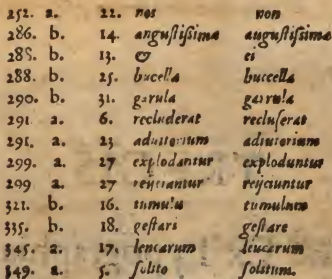 252. a. 22. nos non
286. b. 14. anguſtiſsima auguſtiſsima
288. b. 13. & ei
288. b. 25. bucella buccella
290. b. 31. garula garrula
291. a. 6. recluderat recluſerat
291. a. 23 adiutorium adiutorium
299. a. 27 explodantur exploduntur
299 a. 27 reijciantur reijciuntur
321. b. 16. tumulu tumulum
335. b. 18. geſtari geſtare
345. a. 17. lencarum leucarum
349. a. 5. ſolito ſolitum.